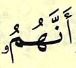 أَنَّهُمُۥ